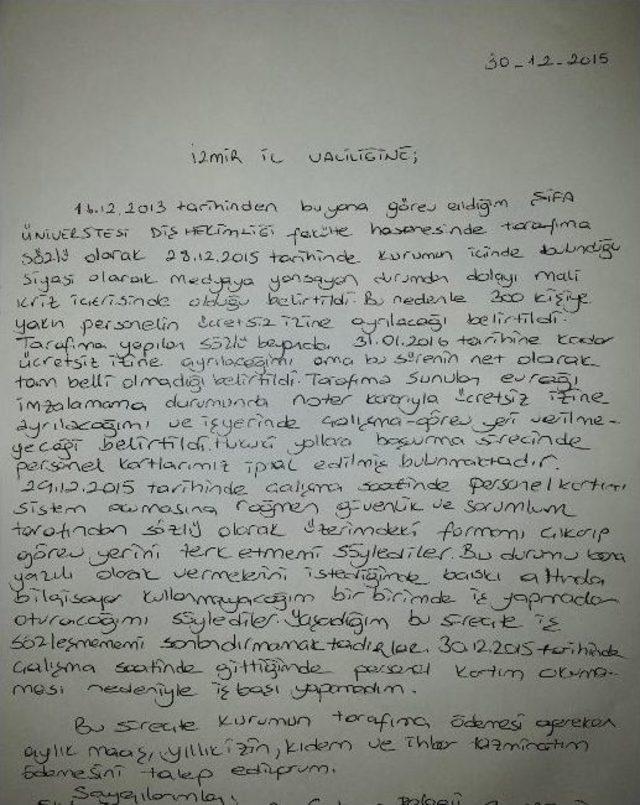 30-12-2015
İZMİR İL VALİLİĞİNE;
16.12.2013 tarihinden bu yana görev aldığım ŞİFA
ÜNİVERSTESİ DİŞ HEKİMLİĞİ fakülte hastanesinde tarafıma
sözlü olarak 28.12.2015 tarihinde kurumun içinde bulunduğu
siyasi olarak medyaya yansıyan durumdan dolayı mali
kriz içerisinde olduğu belirtildi. Bu nedenle 300 kişiye
yakın personelin ücretsiz izine ayrılacağı belirtildi.
Tarafıma yapılan sözlü beyanda 31.01.2016 tarihine kadar
ücretsiz izine ayrılacağımı ama bu sürenin net olarak
tam belli olmadığı belirtildi. Tarafıma sunulan evrağı
imzalamama durumunda noter kararıyla ücretsiz izine
ayrılacağımı ve işyerinde çalışma-görev yeri verilme-
yeceği belirtildi. Hukuki yollara başvurma sürecinde
personel kartlarımız iptal edilmiş bulunmaktadır.
29.12.2015 tarihinde çalışma saatinde personel kartımı
sistem açmasına rağmen güvenlik ve sorumlum
tarafından sözlü olarak üzerimdeki formamı çıkarıp
görev yerini terk etmemi söylediler. Bu durumu bana
yazılı olarak vermelerini istediğimde baskı altında
bilgisayar kullanmayacağım bir birimde iş yapmadan
oturacağımı söylediler. Yaşadığım bu süreçte iş
sözleşmememi sonlandırmamaktadırlar. 30.12.2015 tarihinde
çalışma saatinde gittiğimde personel kartım okuma-
ması nedeniyle iş başı yapamadım.
Bu süreçte kurumun tarafıma ödemesi gereken
aylık maaş, yıllık izin, kıdem ve ihbar tazminatım
ödemesini talep ediyorum.
Saygılarımla;